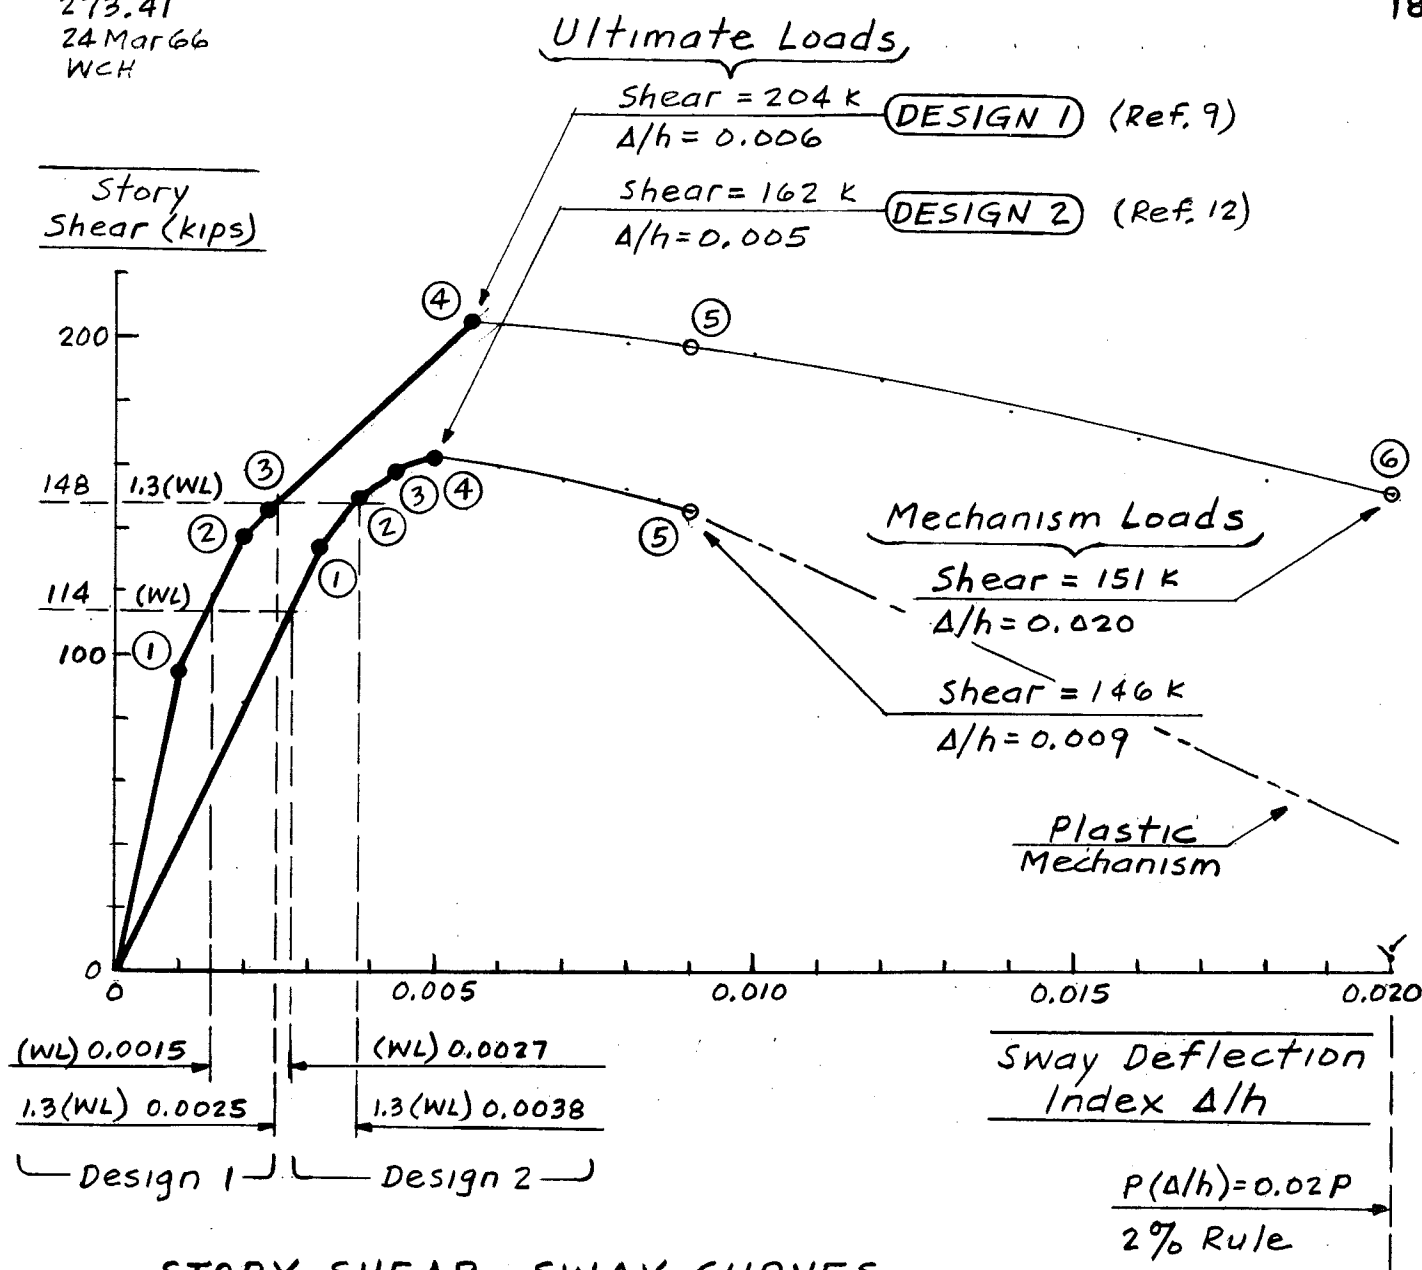 273.41
24 Mar 66
WCH
18
Ultimate Loads
Shear = 204 K
Δ/h = 0.006
DESIGN 1 (Ref. 9)
Shear = 162 K
Δ/h = 0.005
DESIGN 2 (Ref. 12)
Story
Shear (kips)
200
148 1.3(WL)
114 (WL)
100
0
④
⑤
⑥
③
②
①
③ ④
②
①
⑤
Mechanism Loads
Shear = 151 K
Δ/h = 0.020
Shear = 146 K
Δ/h = 0.009
Plastic
Mechanism
0 0.005 0.010 0.015 0.020
(WL) 0.0015 (WL) 0.0027
1.3(WL) 0.0025 1.3(WL) 0.0038
Design 1 Design 2
Sway Deflection
Index Δ/h
P(Δ/h)=0.02P
2% Rule
STORY SHEAR - SWAY CURVES